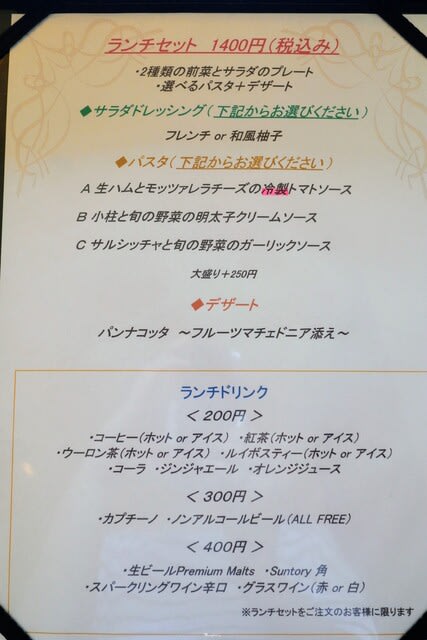 ランチセット 1400円(税込み)
・2種類の前菜とサラダのプレート
・選べるパスタ＋デザート
◆サラダドレッシング(下記からお選びください)
フレンチ or 和風柚子
◆パスタ(下記からお選びください)
A 生ハムとモッツァレラチーズの冷製トマトソース
B 小柱と旬の野菜の明太子クリームソース
C サルシッチャと旬の野菜のガーリックソース
大盛り＋250円
◆デザート
パンナコッタ ～フルーツマチェドニア添え～
ランチドリンク
＜200円＞
・コーヒー(ホット or アイス) ・紅茶(ホット or アイス)
・ウーロン茶(ホット or アイス) ・ルイボスティー(ホット or アイス)
・コーラ ・ジンジャエール ・オレンジジュース
＜300円＞
・カプチーノ ・ノンアルコールビール(ALL FREE)
＜400円＞
・生ビールPremium Malts ・Suntory 角
・スパークリングワイン辛口 ・グラスワイン(赤 or 白)
※ランチセットをご注文のお客様に限ります